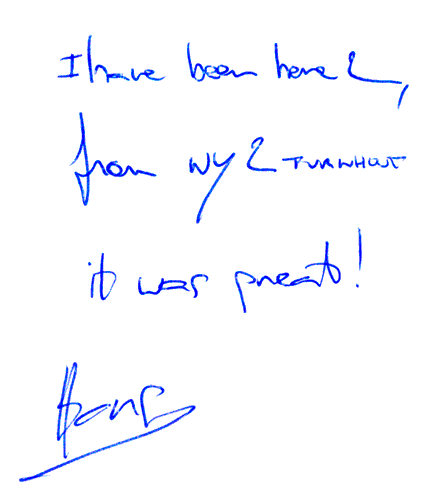 I have been here 2,
from NY 2 TURNHOUT
it was great!
Hans